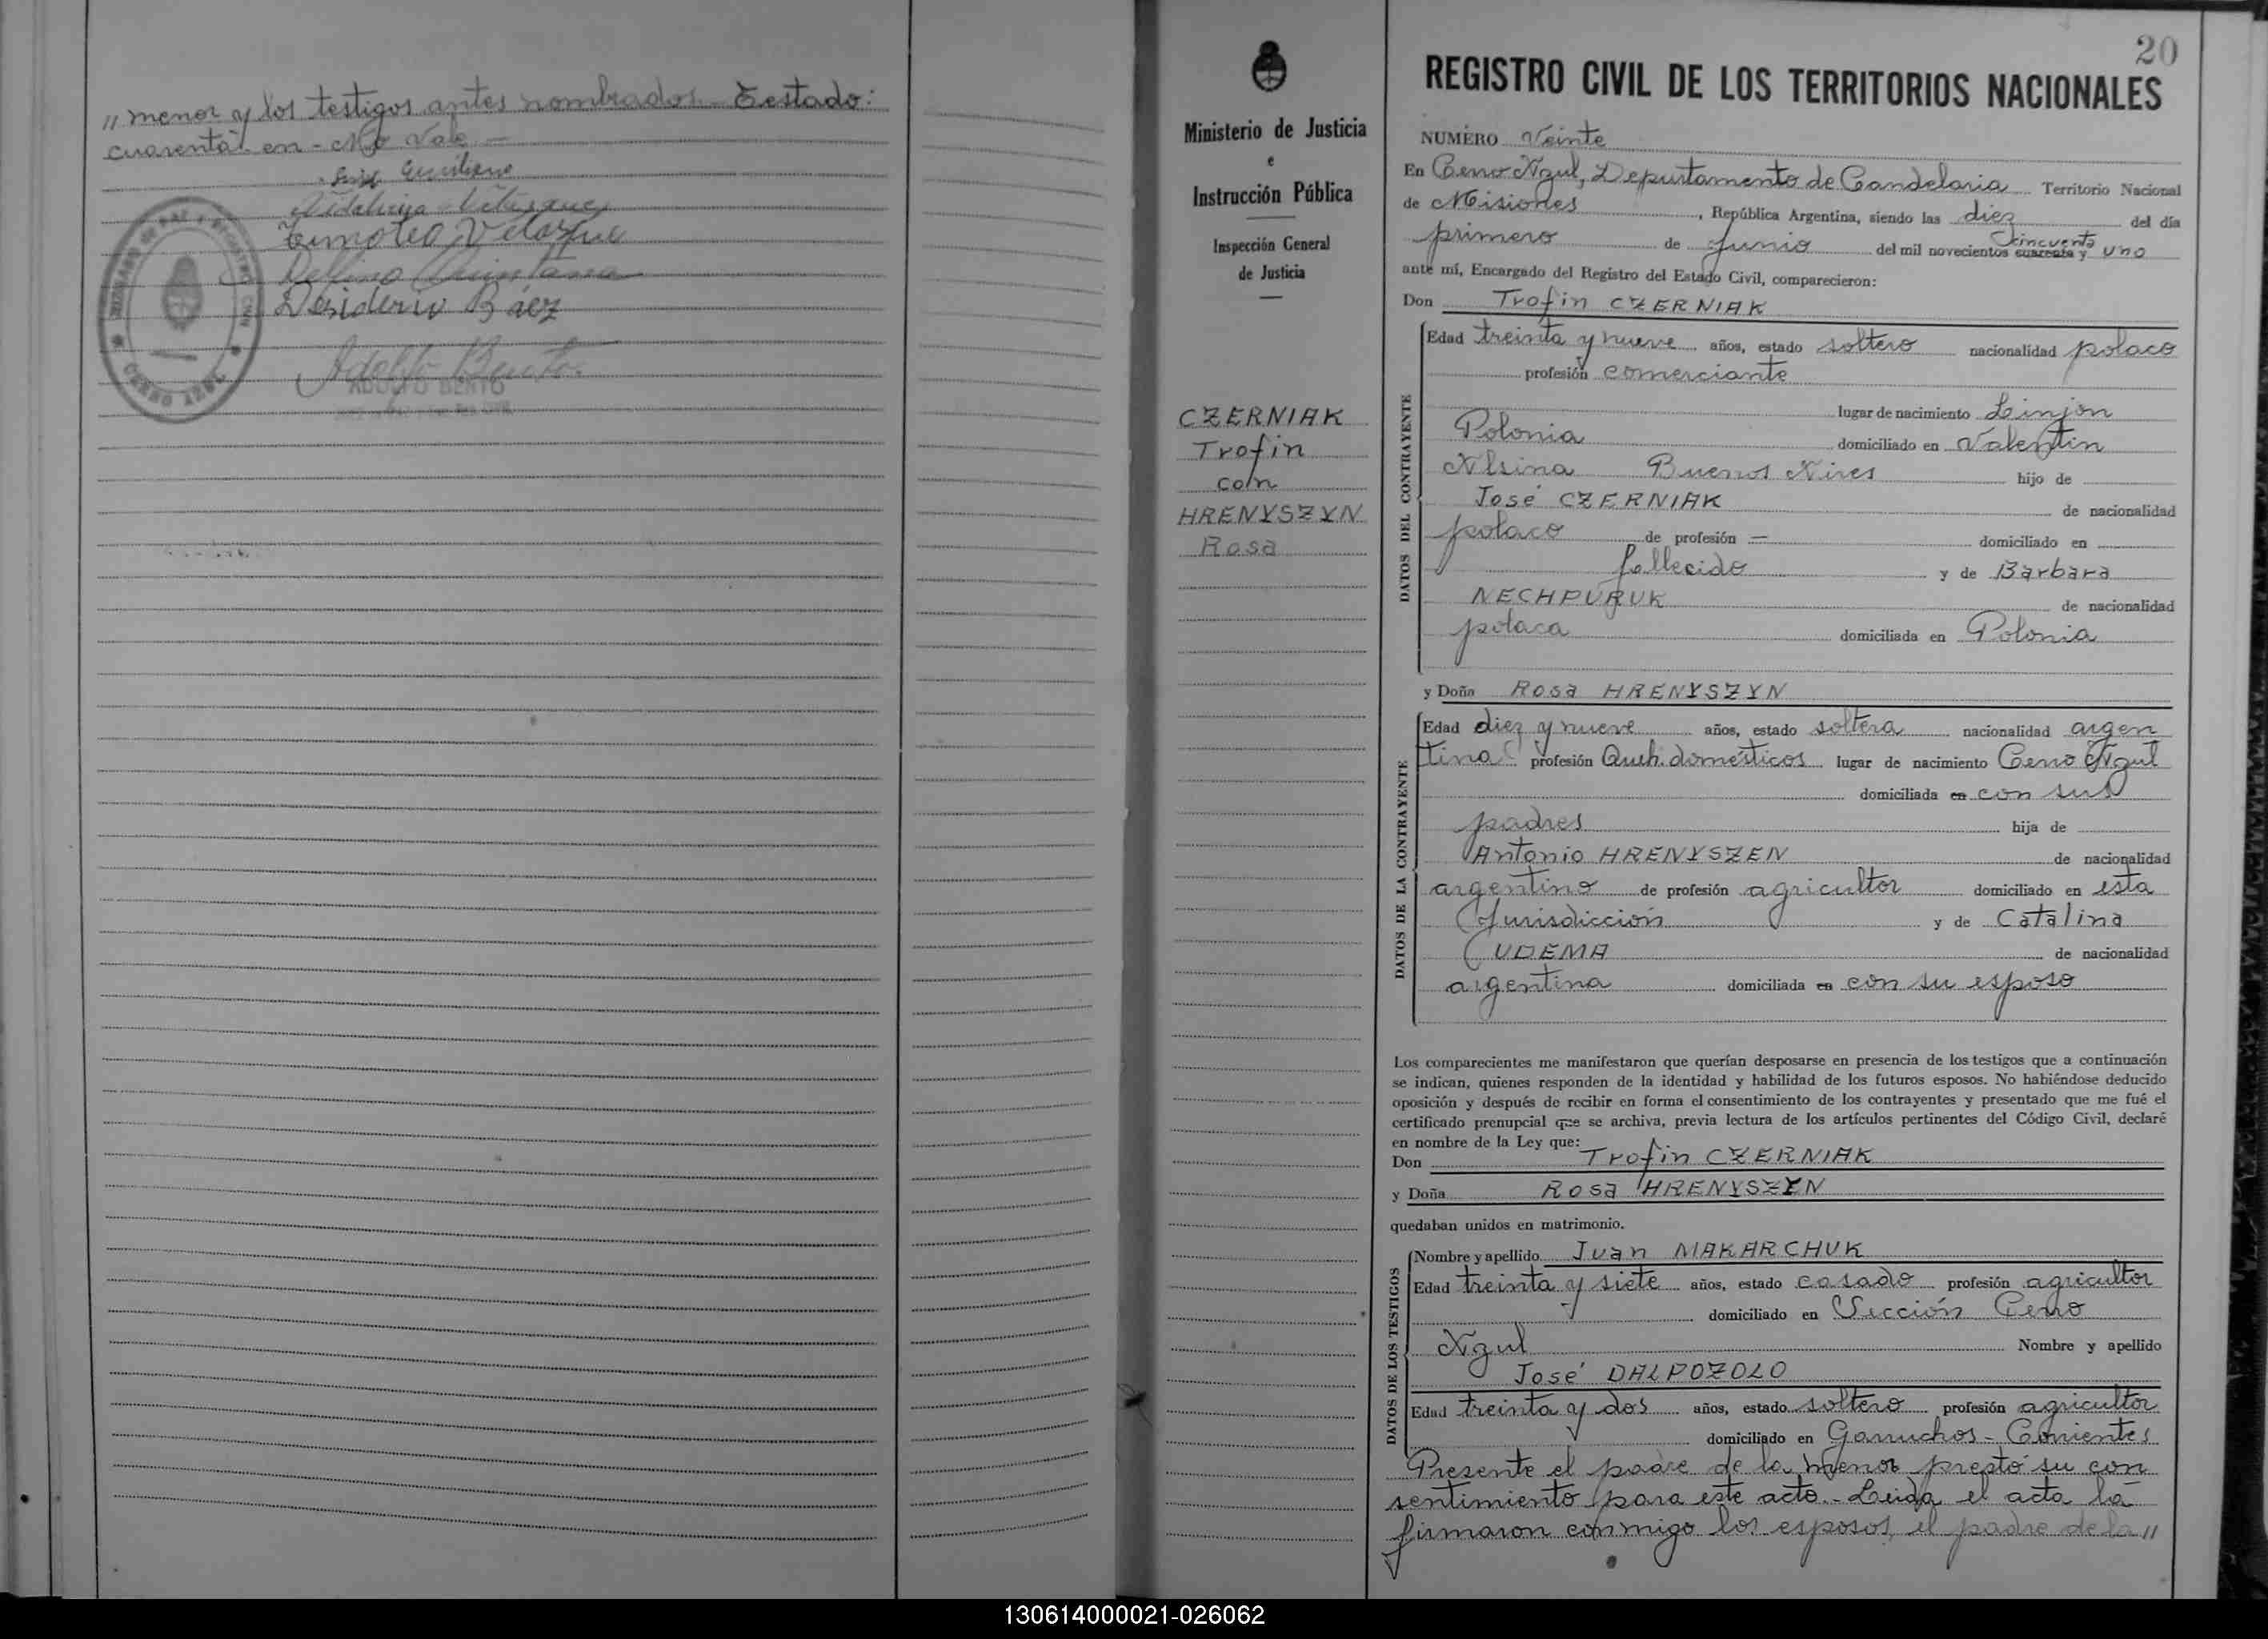 " menor y los testigos antes nombrados - Testado:
cuarenta - en - No Vale -
Timoteo Velazque
Delfino Quintana
Desiderio Báez
Adolfo Bento
ADOLFO BENTO
CERRO AZUL
20
Ministerio de Justicia
e
Instrucción Pública
Inspección General
de Justicia
CZERNIAK
Trofin
con
HRENYSZYN
Rosa
REGISTRO CIVIL DE LOS TERRITORIOS NACIONALES
NUMERO Veinte
En Cerro Azul, Departamento de Candelaria Territorio Nacional
de Misiones, República Argentina, siendo las diez del día
primero de Junio del mil novecientos cuarenta y cincuenta uno
ante mí, Encargado del Registro del Estado Civil, comparecieron:
Don Trofin CZERNIAK
DATOS DEL CONTRAYENTE
Edad treinta y nueve años, estado soltero nacionalidad polaco
profesión comerciante
lugar de nacimiento Linjon
Polonia domiciliado en Valentin
Alsina Buenos Aires hijo de
José CZERNIAK de nacionalidad
polaco de profesión — domiciliado en
fallecido y de Barbara
NECHPURUK de nacionalidad
polaca domiciliada en Polonia
y Doña Rosa HRENYSZYN
DATOS DE LA CONTRAYENTE
Edad diez y nueve años, estado soltera nacionalidad argen
tina profesión Queh. domésticos lugar de nacimiento Cerro Azul
domiciliada en con sus
padres hija de
Antonio HRENYSZEN de nacionalidad
argentino de profesión agricultor domiciliado en esta
Jurisdicción y de Catalina
UDEMA de nacionalidad
argentina domiciliada en con su esposo
Los comparecientes me manifestaron que querían desposarse en presencia de los testigos que a continuación
se indican, quienes responden de la identidad y habilidad de los futuros esposos. No habiéndose deducido
oposición y después de recibir en forma el consentimiento de los contrayentes y presentado que me fué el
certificado prenupcial que se archiva, previa lectura de los artículos pertinentes del Código Civil, declaré
en nombre de la Ley que:
Don Trofin CZERNIAK
y Doña Rosa HRENYSZYN
quedaban unidos en matrimonio.
DATOS DE LOS TESTIGOS
Nombre y apellido Juan MAKARCHUK
Edad treinta y siete años, estado casado profesión agricultor
domiciliado en Sección Cerro
Azul Nombre y apellido
José DALPOZOLO
Edad treinta y dos años, estado soltero profesión agricultor
domiciliado en Garruchos - Corrientes
Presente el padre de la menor prestó su con
sentimiento para este acto. - Leida el acta la
firmaron conmigo los esposos, el padre de la "
130614000021-026062